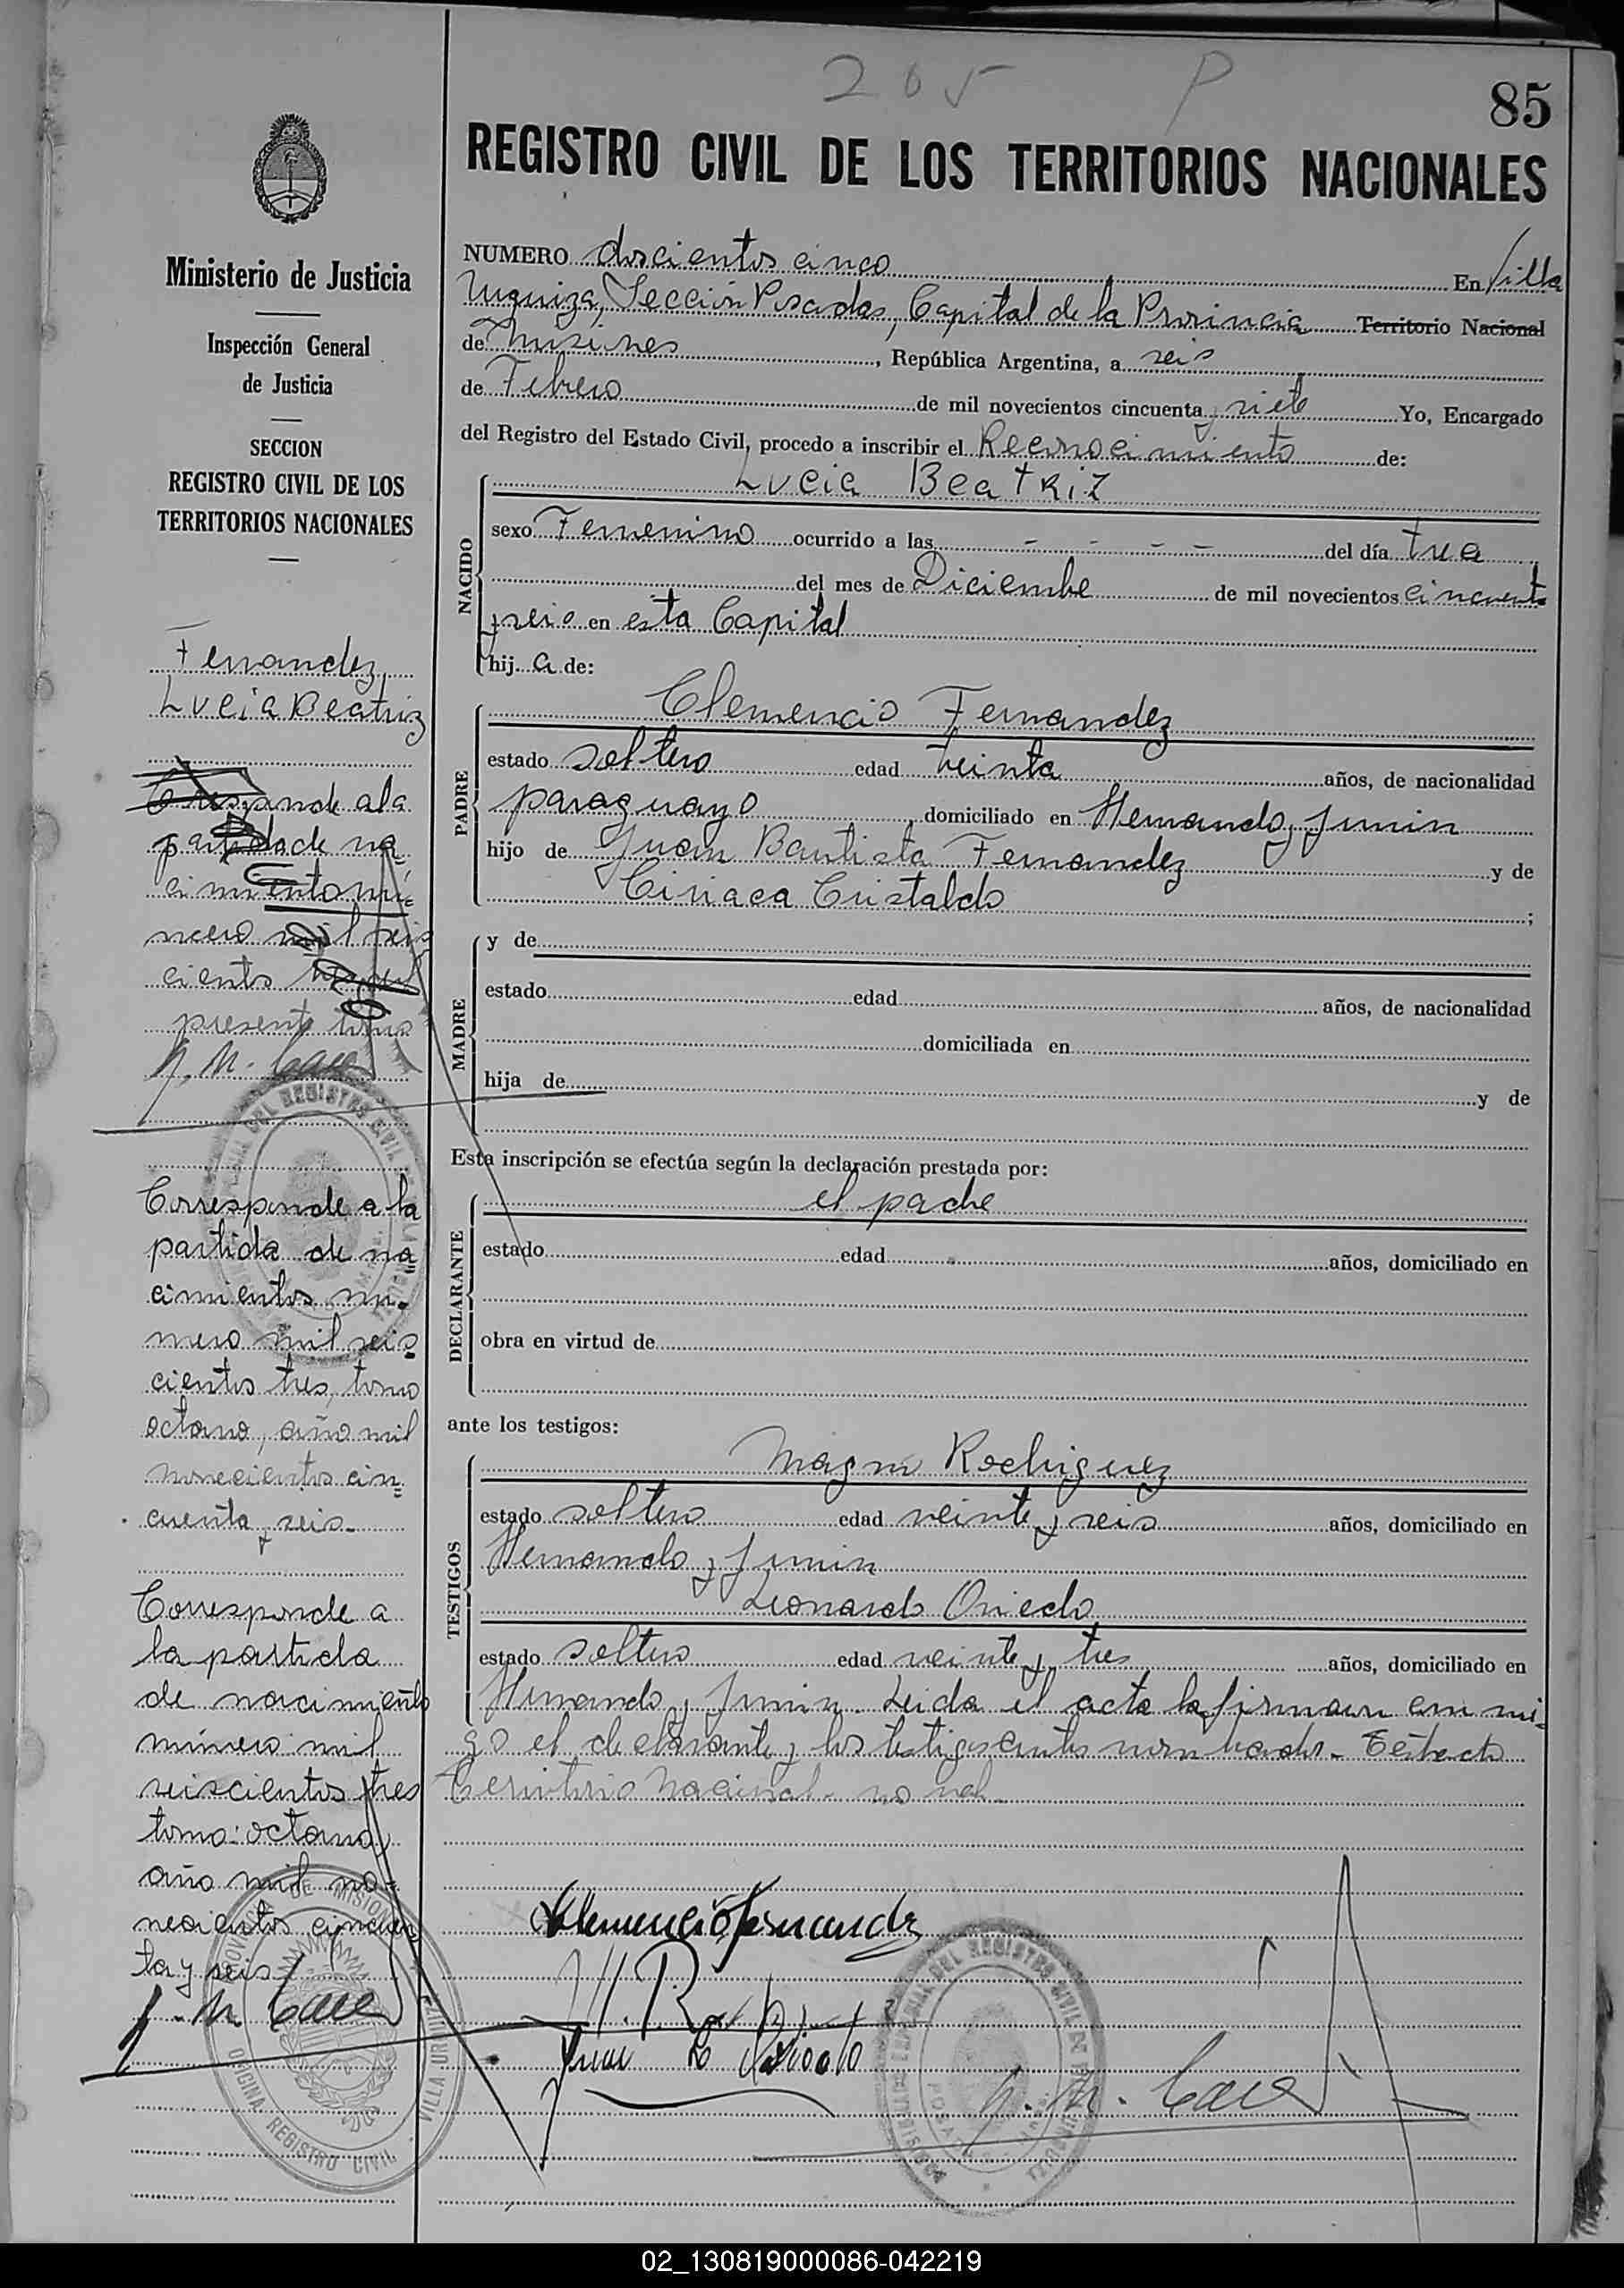 205 P
85
REGISTRO CIVIL DE LOS TERRITORIOS NACIONALES
Ministerio de Justicia
Inspección General
de Justicia
SECCION
REGISTRO CIVIL DE LOS
TERRITORIOS NACIONALES
Fernandez,
Lucia Beatriz
Corresponde a la
partida de na=
cimiento nú=
mero mil seis
cientos
presente tomo
Corresponde a la
partida de na=
cimientos nu-
mero mil seis-
cientos tres, tomo
octavo, año mil
novecientos cin=
cuenta y seis.
Corresponde a
la partida
de nacimiento
número mil
seiscientos tres
tomo: octavo,
año mil no-
vecientos cincuen
ta y seis
NUMERO doscientos cinco En Villa
Urquiza, Sección Posadas, Capital de la Provincia Territorio Nacional
de Misiones, República Argentina, a seis
de Febrero de mil novecientos cincuenta y siete Yo, Encargado
del Registro del Estado Civil, procedo a inscribir el Reconocimiento de:
NACIDO
Lucia Beatriz
sexo Femenino ocurrido a las - - - - del día trece
del mes de Diciembre de mil novecientos cincuenta
y seis en esta Capital
hij a de:
PADRE
Clemencio Fernandez
estado soltero edad treinta años, de nacionalidad
paraguayo, domiciliado en Hernando y Junin
hijo de Juan Bautista Fernandez y de
Ciriaca Cristaldo;
MADRE
y de
estado edad años, de nacionalidad
domiciliada en
hija de y de
Esta inscripción se efectúa según la declaración prestada por:
DECLARANTE
el padre
estado edad años, domiciliado en
obra en virtud de
ante los testigos:
TESTIGOS
Rodriguez
estado soltero edad veinte y seis años, domiciliado en
Hernando y Junin
Leonardo Oviedo
estado soltero edad veinte y tres años, domiciliado en
Hernando y Junin. Leida el acta la firman con mi-
go el declarante y los testigos antes nombrados. Testado
Territorio Nacional. no vale.
Clemencio Fernandez
PROVINCIA DE MISIONES
OFICINA REGISTRO CIVIL
VILLA URQUIZA
DEL REGISTRO CIVIL DE LA PROVINCIA
POSADAS
02_130819000086-042219